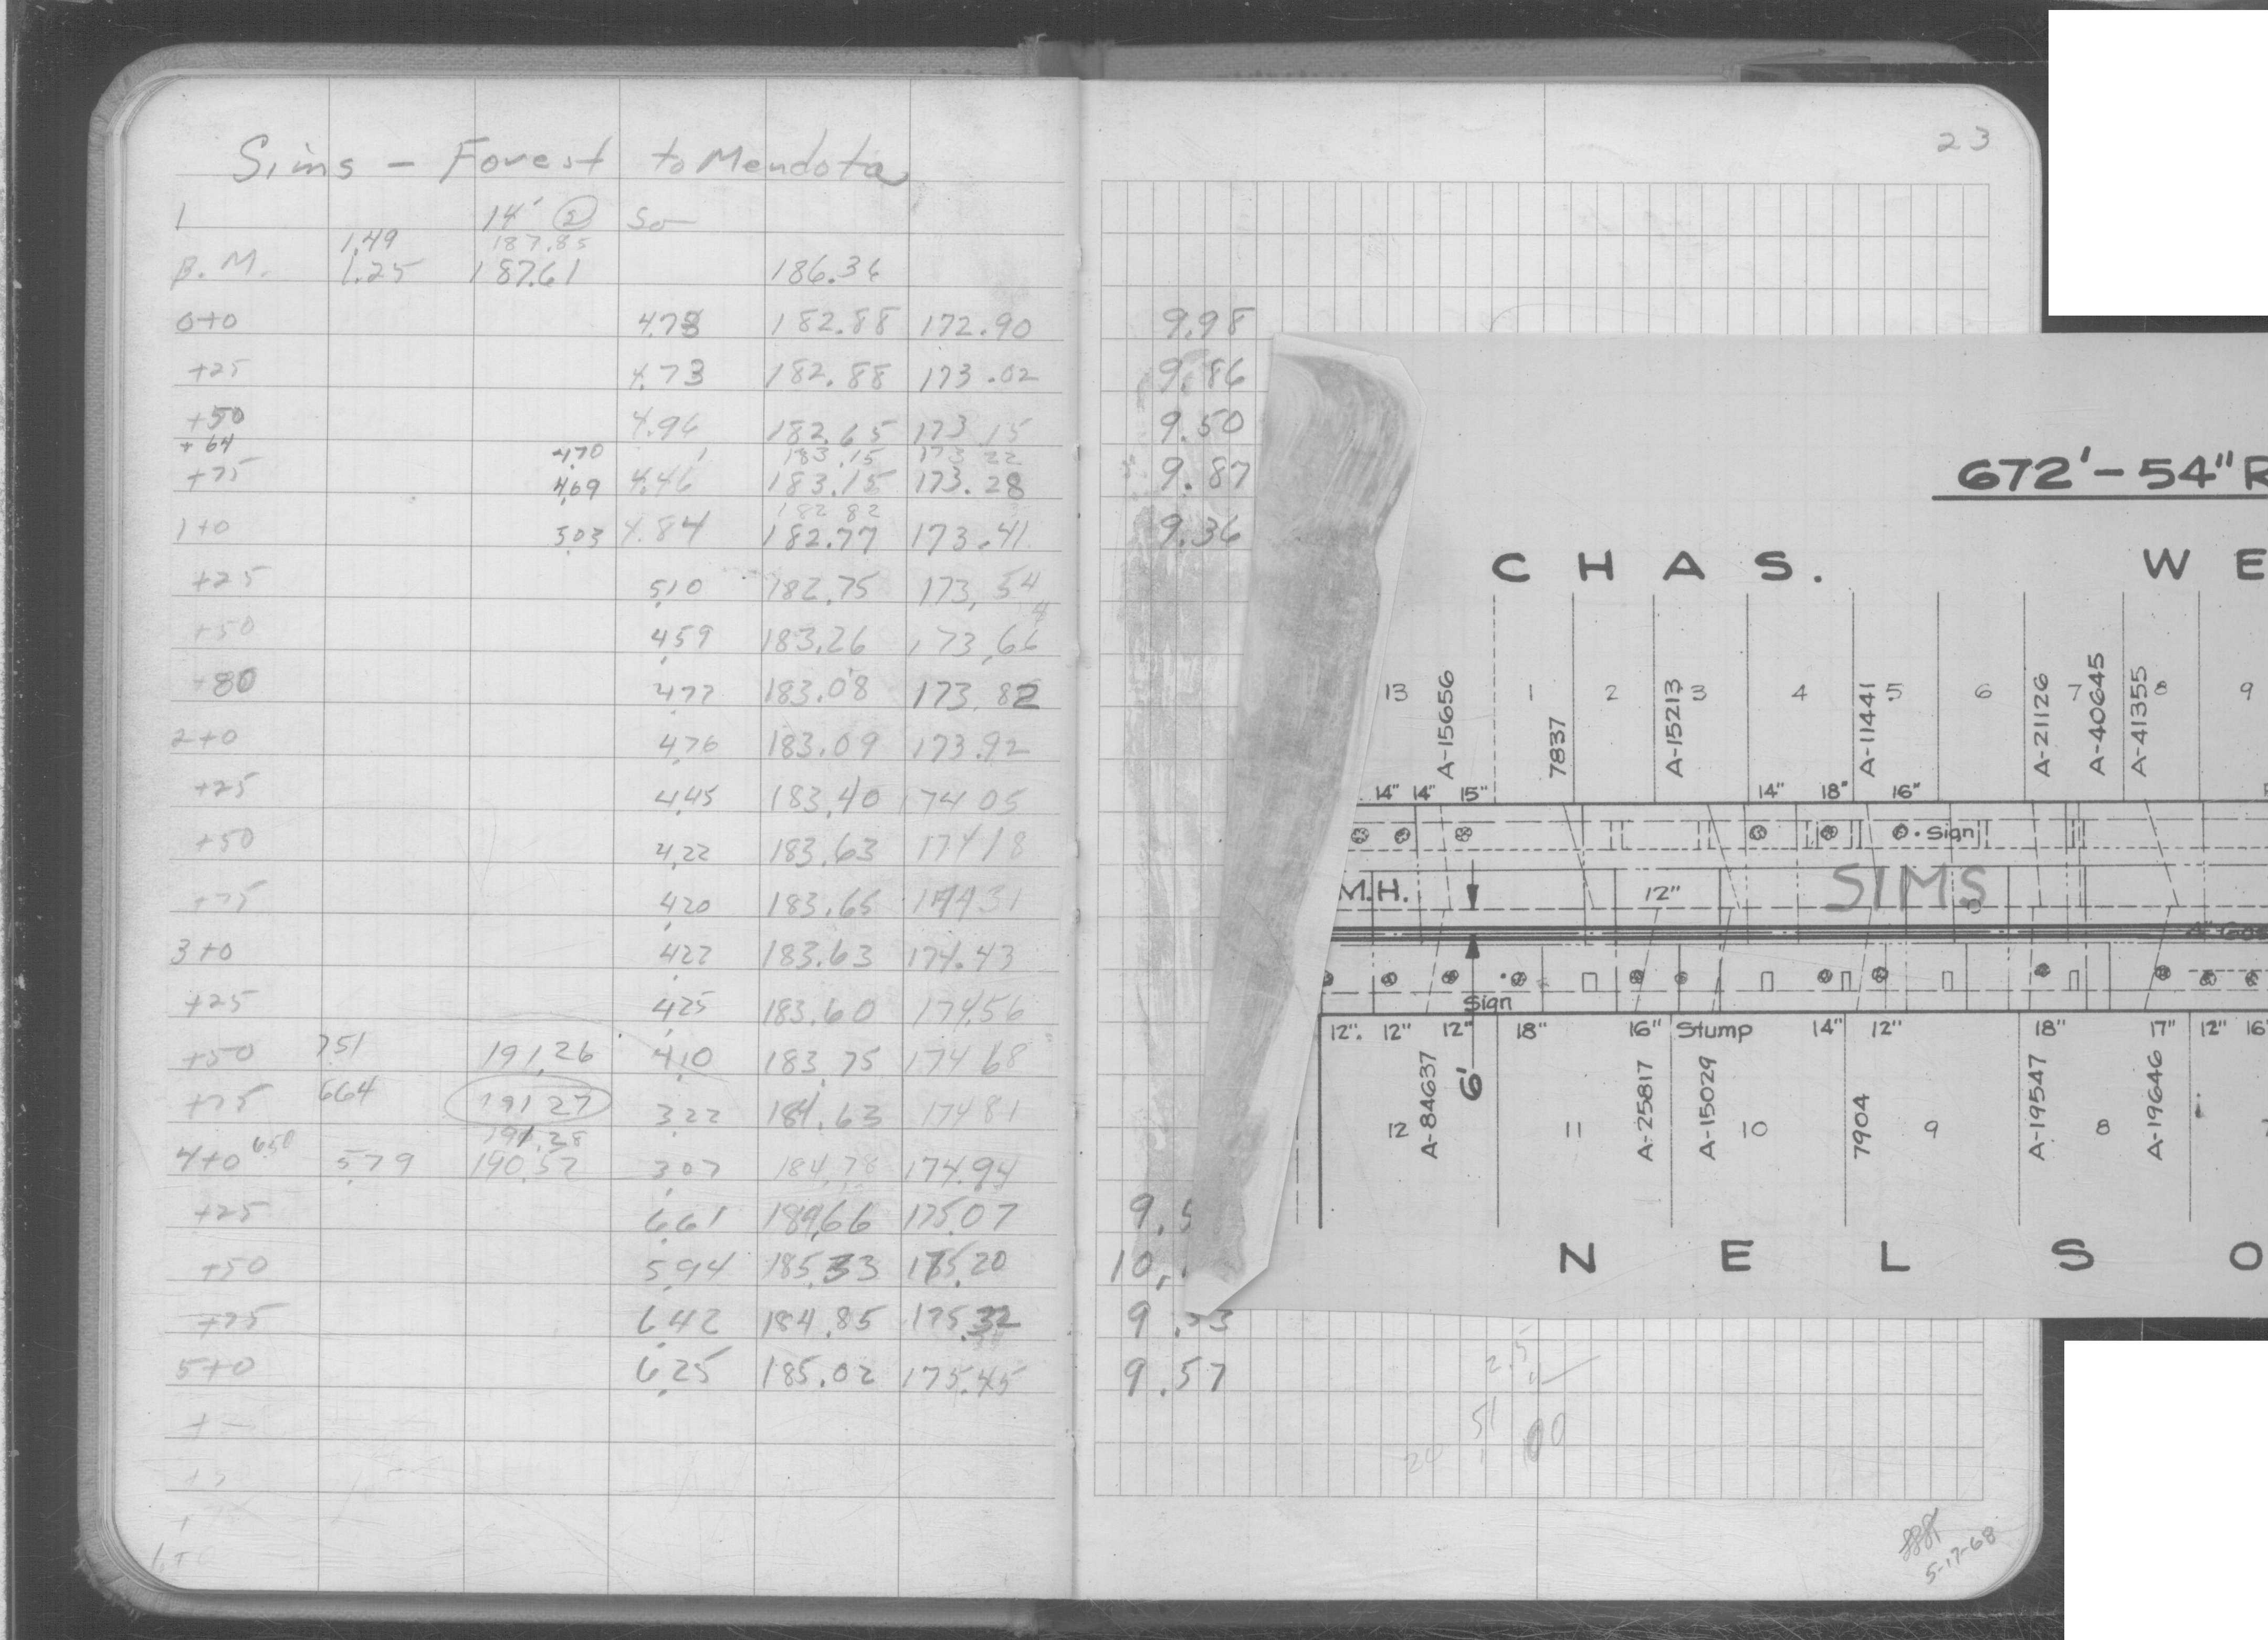 Sims - Forest to Mendota
1 14' (2) So
1.49 187.85
B.M. 1.25 187.61 186.36
0+0 4.73 182.88 172.90
+25 4.73 182.88 173.02
+50 4.96 182.65 173.15
+64 4.70 183.15 173 22
+75 4.69 4.46 183.15 173.28
182 82
1+0 5.03 4.84 182.77 173.41
+25 5.10 182.75 173.54
+50 4.59 183.26 173.66
+80 4.77 183.08 173.82
2+0 4.76 183.09 173.92
+25 4.45 183.40 174 05
+50 4.22 183.63 174 18
+75 4.20 183.65 174 31
3+0 4.22 183.63 174.43
+25 4.25 183.60 174.56
+50 7.51 191.26 4.10 183.75 174 68
+75 6.64 191 27 3.22 184.63 174 81
191.28
4+0 6.50 5.79 190.57 3.07 184.78 174.94
+25 6.61 184.66 175.07
+50 5.94 185.33 175.20
+75 6.42 184.85 175.32
5+0 6.25 185.02 175.45
23
9.98
9.86
9.50
9.87
9.36
9.5
10.
9.53
9.57
672'-54" R
CHAS. WE
13 A-15656 1 7837 2 A-15213 3 4 A-11441 5 6 A-21126 7 A-40645 A-41355 8 9
14" 14" 15" 14" 18" 16"
Sign
M.H. 12" SIMS
Sign
12" 12" 12" 18" 16" Stump 14" 12" 18" 17" 12" 16"
6'
12 A-84637 11 A-25817 A-15029 10 7904 9 A-19547 8 A-19646
NELSO
2.5
51
100
5-17-68